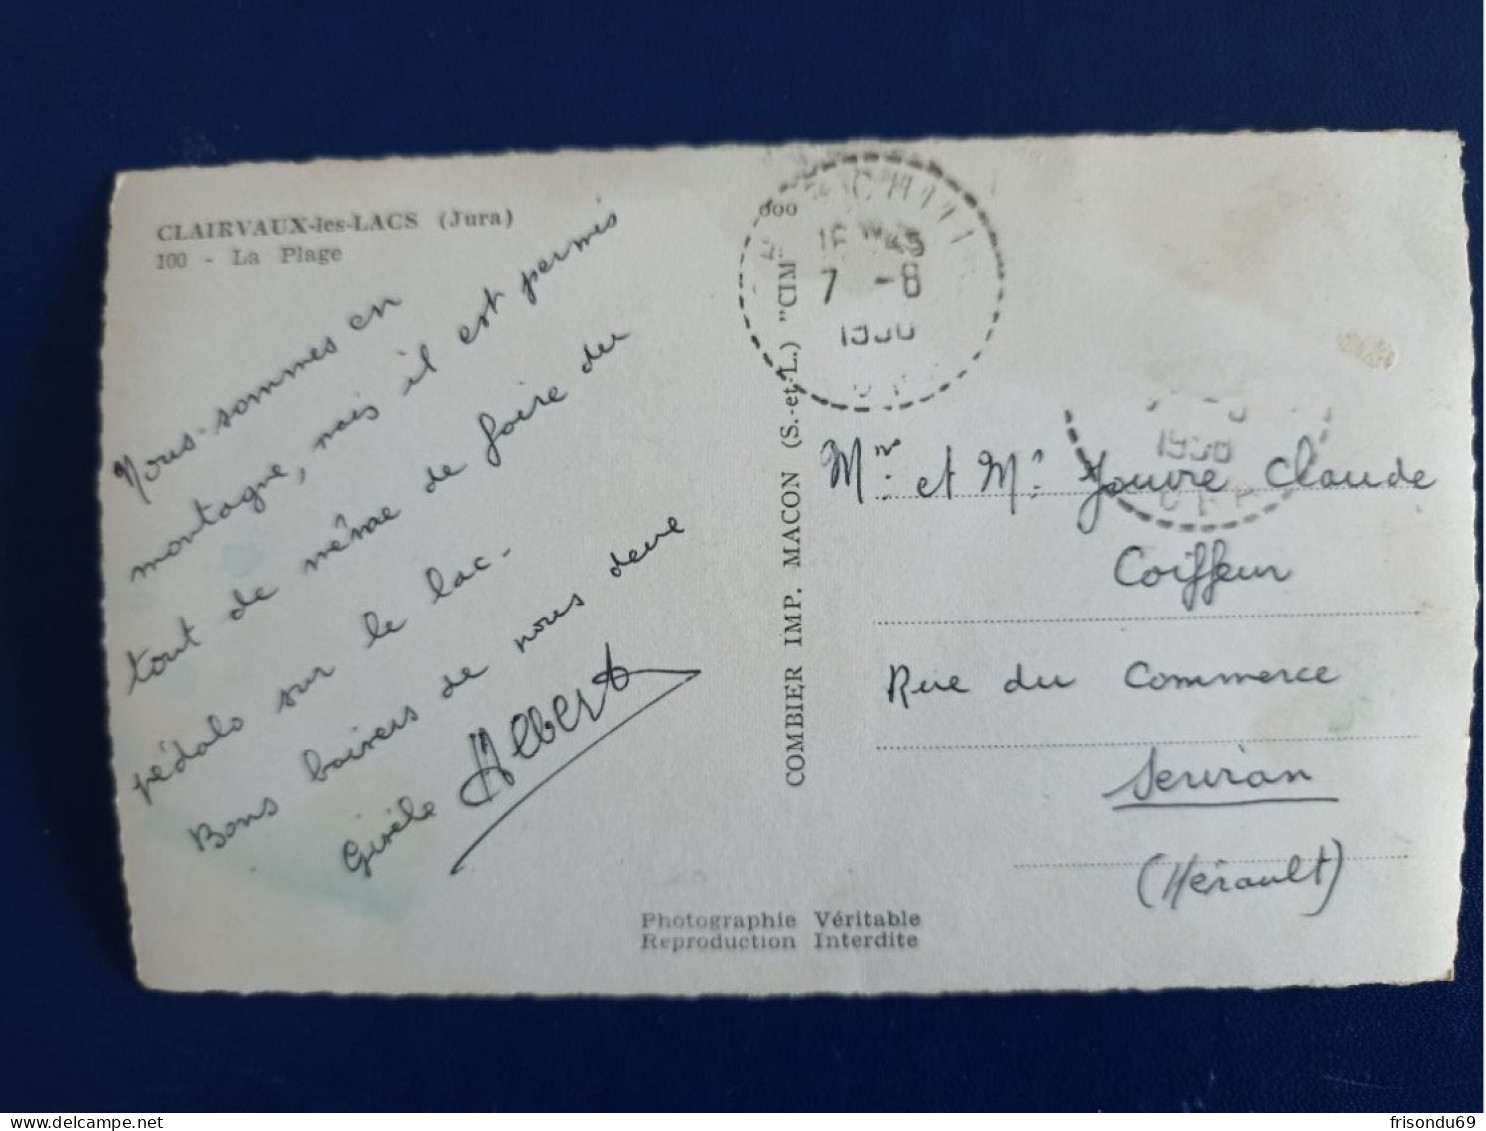 CLAIRVAUX-les-LACS (Jura)
100 - La Plage
Nous sommes en
montagne, mais il est permis
tout de même de faire du
pédalo sur le lac.
Bons baisers de nous deux
Gisèle Albert
COMBIER IMP. MACON (S.-et-L.) "CIM"
7 -8
Mr et Me Jouvre Claude
Coiffeur
Rue du Commerce
Servian
(Hérault)
Photographie Véritable
Reproduction Interdite
frisondu69